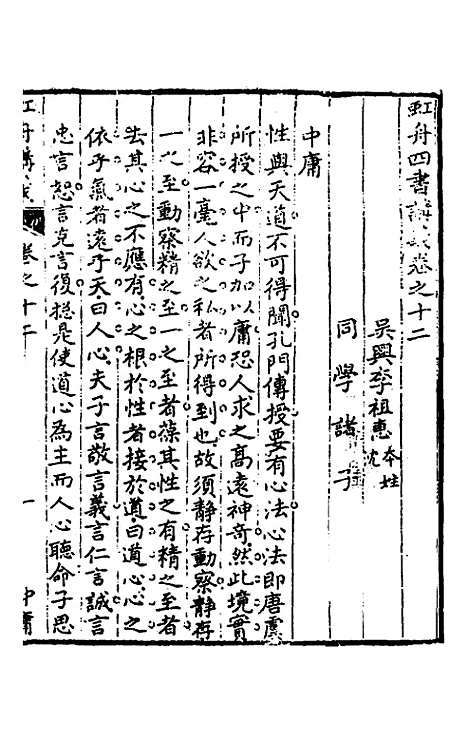 虹舟四書講義卷之十二
吳興李祖惠本姓沈
同學諸子
中庸
性與天道不可得聞孔門傳授要有心法心法即唐虞
所授之中而子加以庸恐人求之髙遠神竒然此境實
非容一毫人欲之私者所得到也故須静存動察静存
一之至動察精之至一之至者葆其性之有精之至者
去其心之不應有心之根於性者接於道曰道心心之
依乎氣者遠乎天曰人心夫子言敬言義言仁言誠言
忠言恕言克言復揔是使道心為主而人心聽命子思
虹舟講義 卷之十二 一 中庸